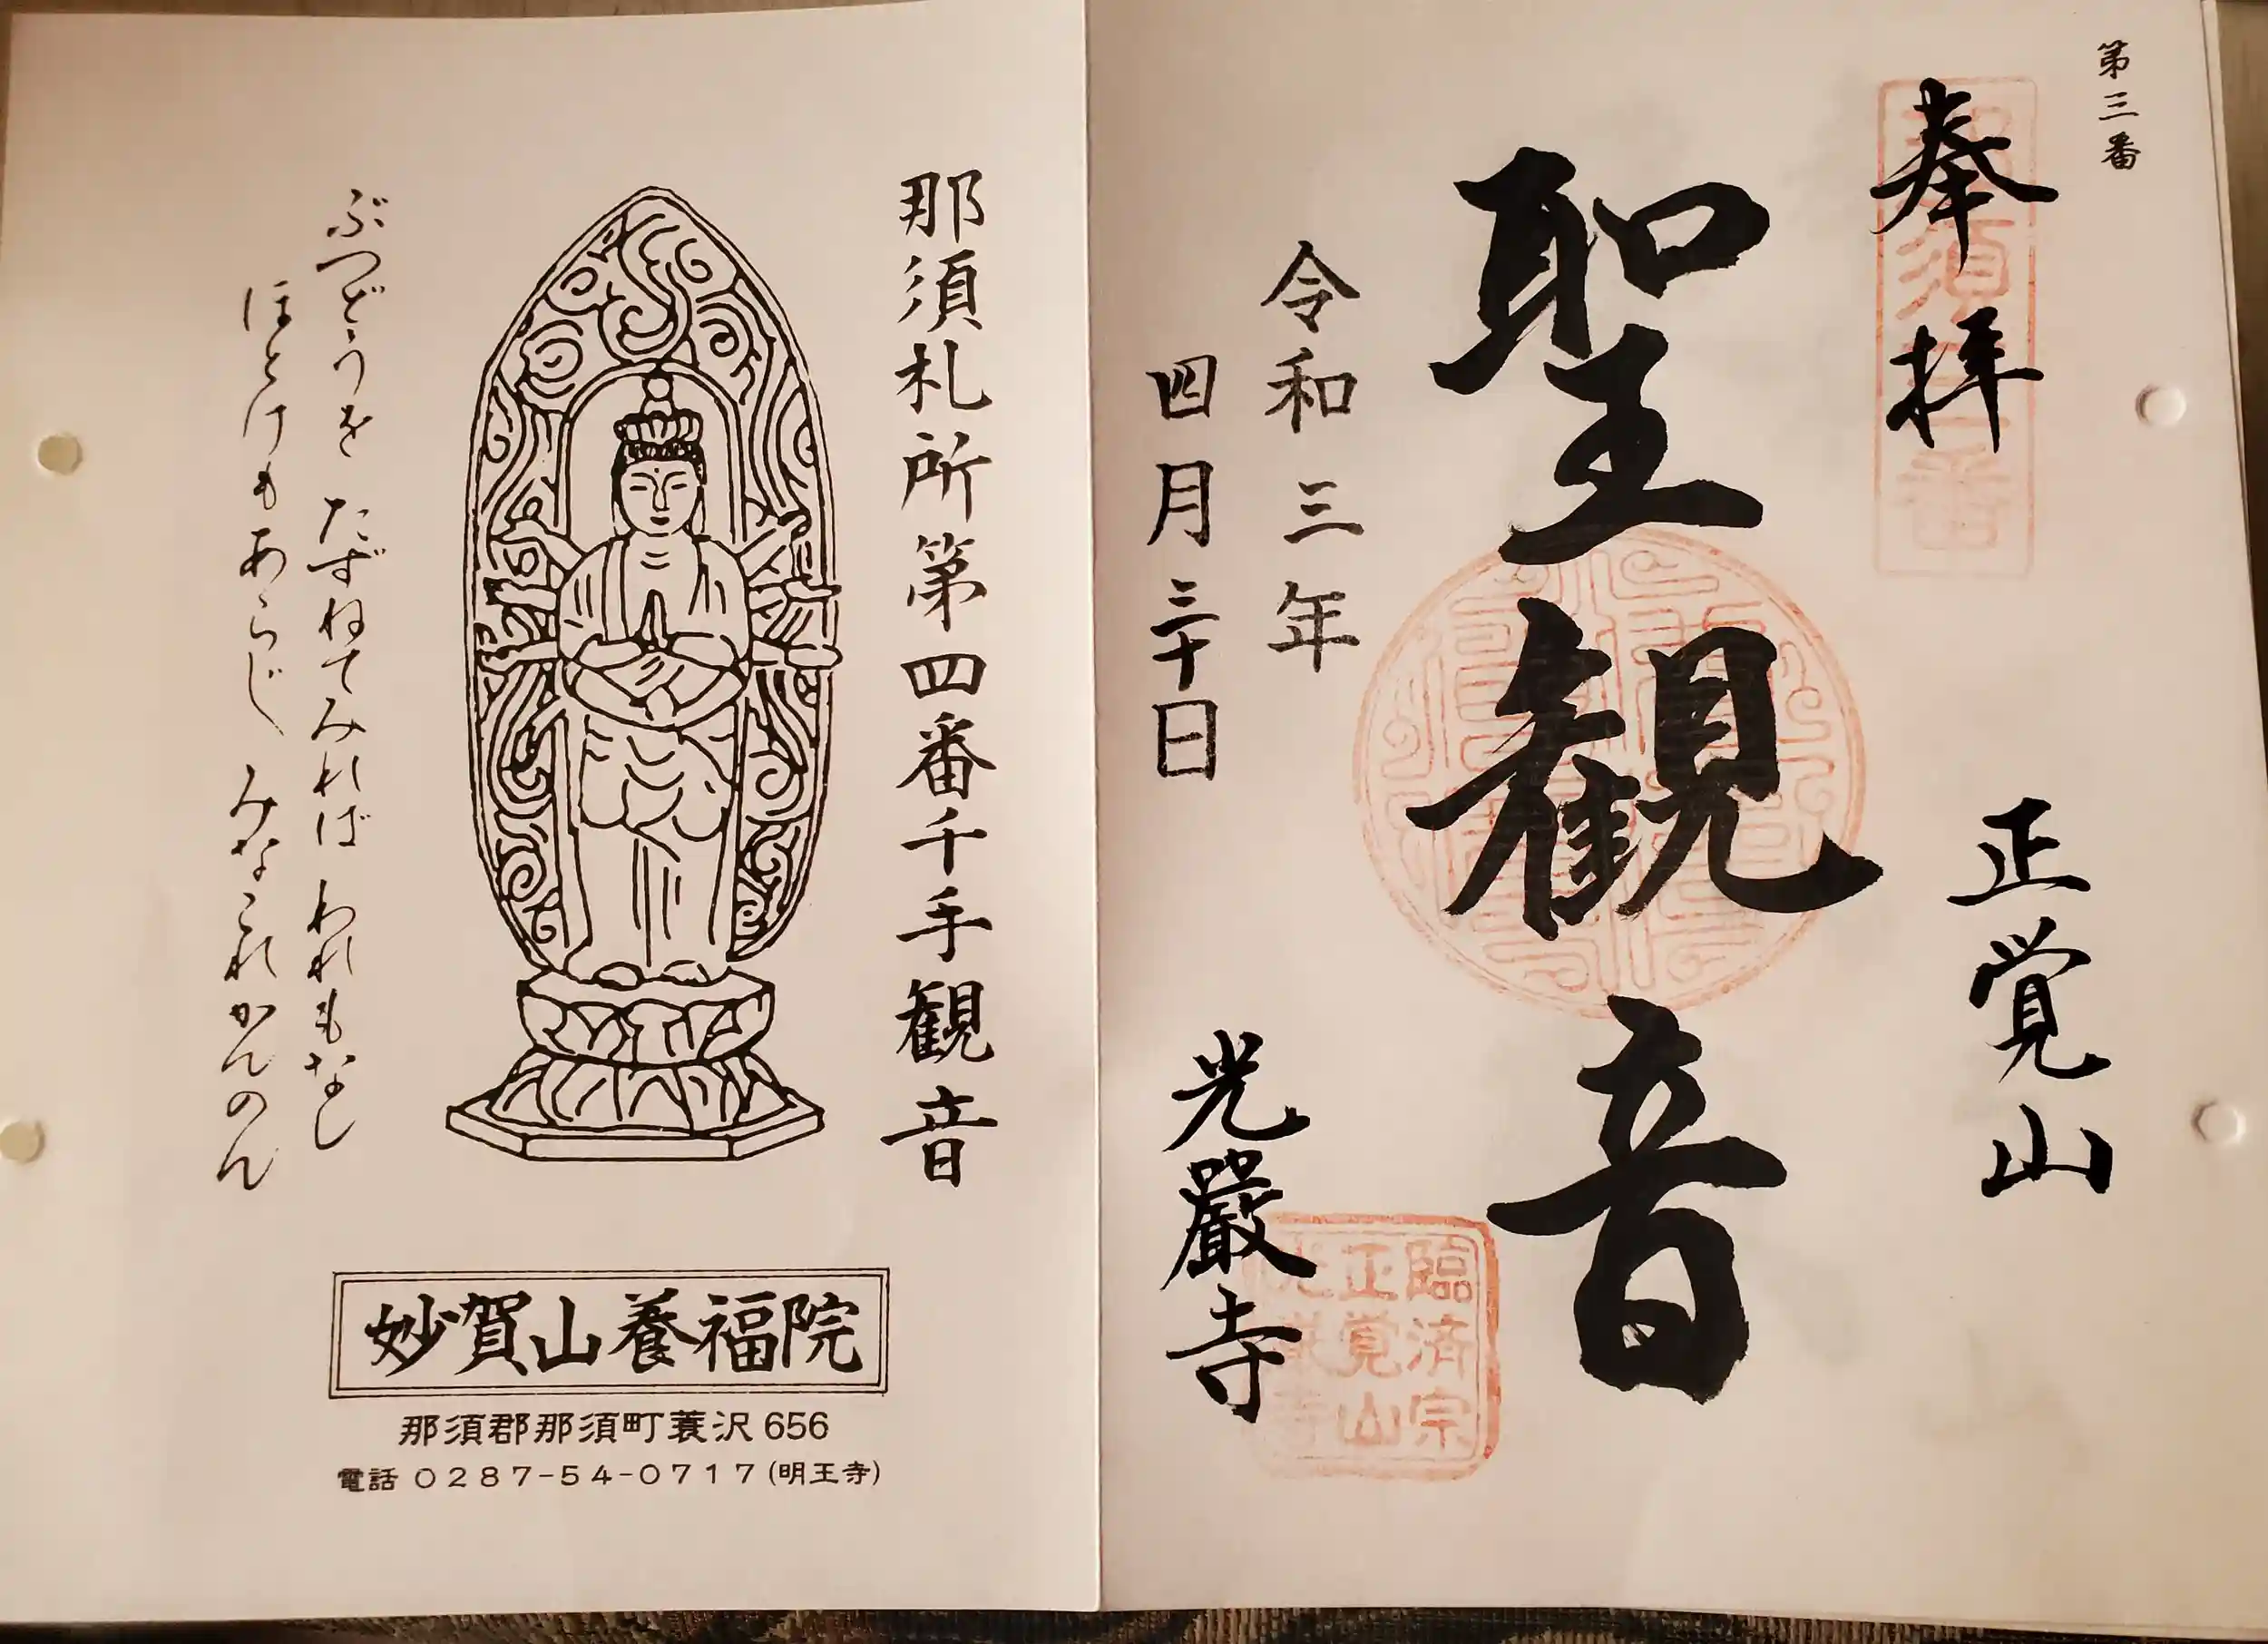 第三番
奉拝
那須三番
正覚山
聖観音
令和三年
四月三十日
光巖寺
臨済宗
正覚山
光巖寺
那須札所第四番千手観音
ぶつどうを たずねてみれば われもなし
ほとけもあらじ みなこれかんのん
妙賀山養福院
那須郡那須町蓑沢656
電話 0287-54-0717(明王寺)